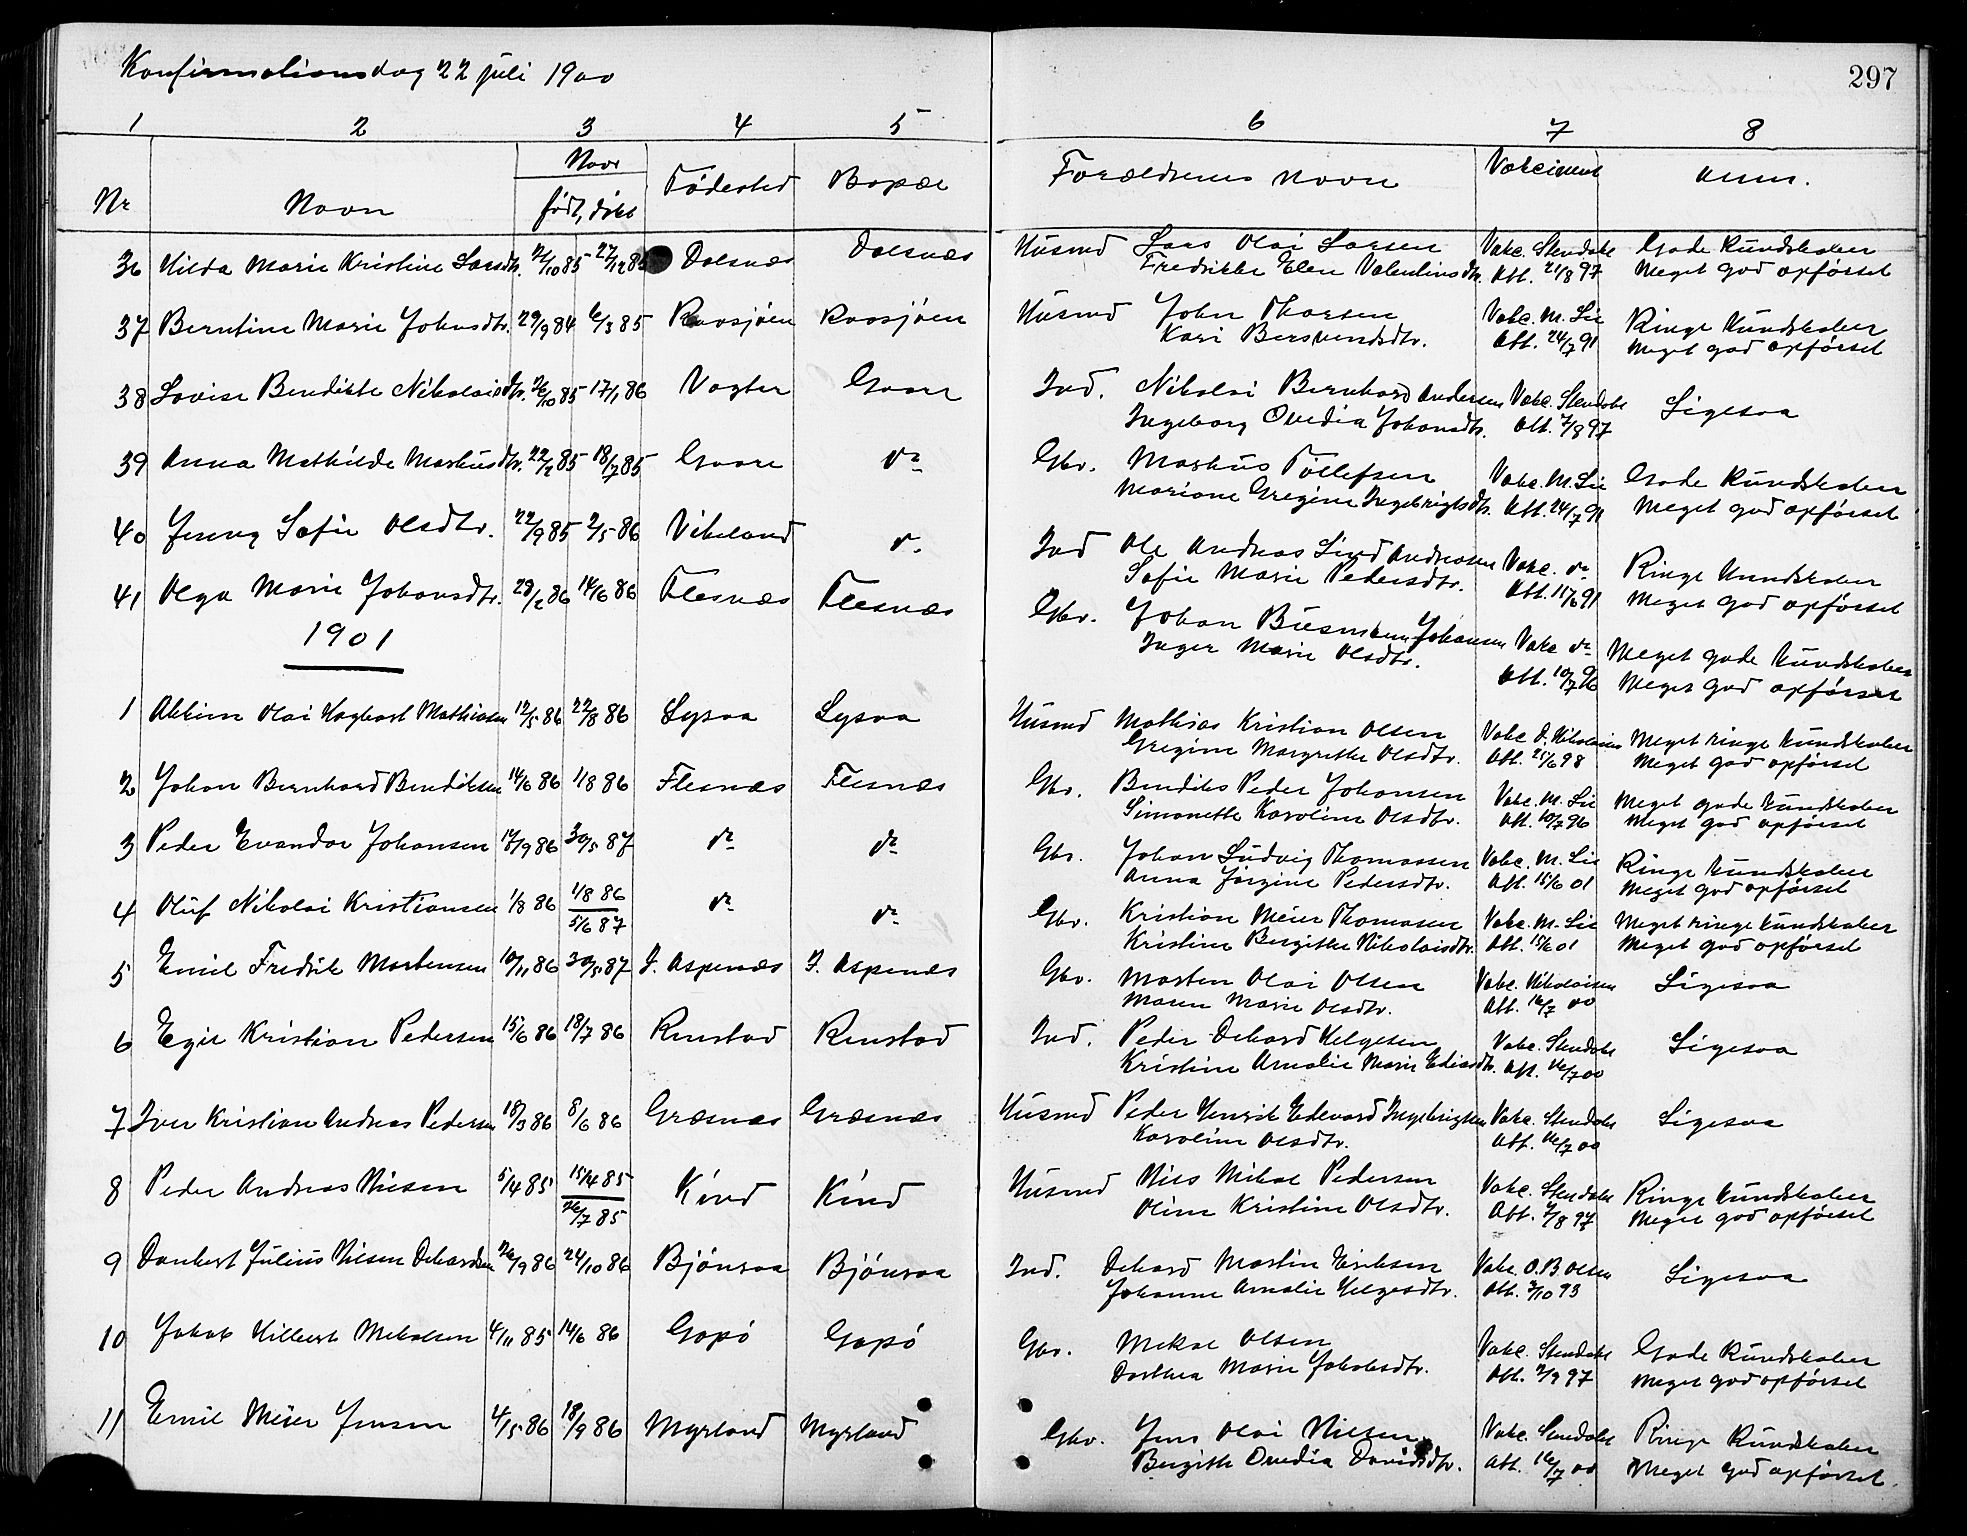 Konfirmationsdag 22 juli 1900
297
1 2 3 4 5 6 7 8
Nr Navn Naar født, døbt Fødested Bopæl Forældrenes navn Vakcineret Anm.
36 Hilda Marie Kristine Larsdtr. 12/10 85 27/12 85 Dalsnæs Dalsnæs Husmd Lars Olai Larsen Vakc. Stendahl Gode Kundskaber
Fredrikke Elen Valentinsdtr. Att. 21/8 97 Meget god opførsel
37 Berntine Marie Johnsdtr. 29/9 84 6/3 85 Raasjøen Raasjøen Husmd John Thorsen Vakc. M. Lie Ringe Kundskaber
Kari Bersvendsdtr. Att. 24/7 91 Meget god opførsel
38 Lovise Bendikte Nikolaisdtr. 26/10 85 17/1 86 Vagter Gaare Ind. Nikolai Bernhard Andersen Vakc. Stendahl Ligesaa
Ingeborg Ovedia Johansdtr. Att. 7/8 97
39 Anna Mathilde Markusdtr. 22/2 85 18/7 85 Gaare do Gbr. Markus Tollefsen Vakc. M. Lie Gode Kundskaber
Mariane Gregine Ingebrigtsdtr. Att. 24/7 91 Meget god opførsel
40 Jenny Sofie Olsdtr. 22/9 85 2/5 86 Vikeland d. Ind Ole Andreas Lind Andreasen Vakc. do Ringe Kundskaber
Sofie Marie Pedersdtr. Att. 11/6 91 Meget god opførsel
41 Olga Marie Johansdtr. 28/2 86 14/6 86 Flesnæs Flesnæs Gbr. Johan Busmann Johansen Vakc do Meget gode Kundskaber
Inger Marie Olsdtr. Att. 10/7 96 Meget god opførsel
1901
1 Akkim Olai Hagbart Mathiasen 12/5 86 22/8 86 Lysaa Lysaa Husmd Mathias Kristian Olsen Vakc D. Nikolaisen Meget ringe Kundskaber
Gregine Margrethe Olsdtr. Att. 21/6 98 Meget god opførsel
2 Johan Bernhard Bendiksen 14/6 86 1/8 86 Flesnæs Flesnæs Gbr. Bendiks Peder Johansen Vakc. M. Lie Meget gode Kundskaber
Simonette Karoline Olsdtr. Att. 10/7 96 Meget god opførsel
3 Peder Evandor Johansen 14/9 86 30/5 87 do do Gbr. Johan Ludvig Thomassen Vakc. M. Lie Ringe Kundskaber
Anna Jørgine Pedersdtr. Att. 15/6 01 Meget god opførsel
4 Oluf Nikolai Kristiansen 1/8 86 1/8 86 do do Gbr. Kristian Meier Thomasen Vakc. M. Lie Meget ringe Kundskaber
5/6 87 Kristine Bergitte Nikolaisdtr. Att. 15/6 01 Meget god opførsel
5 Emil Fredrik Mortensen 10/11 86 30/5 87 I. Aspenæs I. Aspenæs Gbr. Morten Olai Olsen Vakc. Nikolaisen Ligesaa
Maren Marie Olsdtr. Att. 16/7 00
6 Egil Kristian Pedersen 15/6 86 18/7 86 Renstad Renstad Ind. Peder Dehard Helgesen Vakc. Stendahl Ligesaa
Kristine Amalie Marie Ediasdtr. Att. 16/7 00
7 Iver Kristian Andreas Pedersen 18/3 86 8/6 86 Græsnæs Græsnæs Husmd Peder Henrik Edevard Ingebrigtsen Vakc. Stendahl Ligesaa
Karoline Olsdtr. Att. 16/7 00
8 Peder Andreas Nilsen 5/4 85 15/4 85 Kind Kind Husmd Nils Mikal Pedersen Vakc. Stendahl Ringe Kundskaber
26/7 85 Oline Kristine Olsdtr. Att. 7/8 97 Meget god opførsel
9 Dankert Julius Nilsen Dehardsen 26/9 86 24/10 86 Bjønraa Bjønraa Ind. Dehard Martin Eriksen Vakc. O. B Olsen Ligesaa
Johanne Amalie Helgesdtr. Att. 3/10 93
10 Jakob Hilbert Mekalsen 4/11 85 14/6 86 Gapø Gapø Gbr. Mekal Olsen Vakc. Stendahl Gode Kundskaber
Dorthea Marie Jakobsdtr. Att. 2/9 97 Meget god opførsel
11 Emil Meier Jensen 4/5 86 18/9 86 Myrland Myrland Gbr. Jens Olai Nilsen Vakc. Stendahl Ringe Kundskaber
Bergitte Ovedia Davidsdtr. Att. 16/7 00 Meget god opførsel.